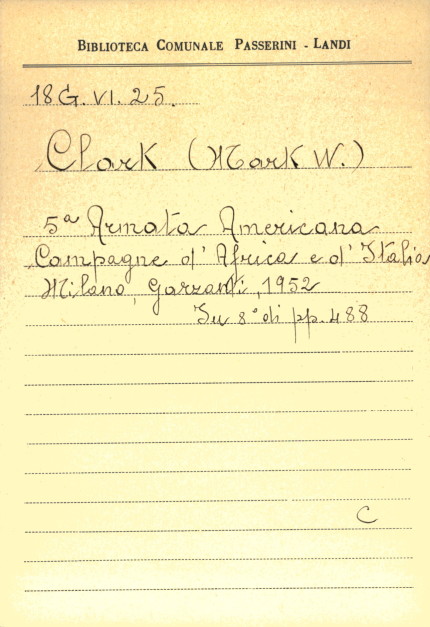 BIBLIOTECA COMUNALE PASSERINI - LANDI
18G. VI. 25.
Clark (Mark W.)
5ª Armata Americana
Campagne d'Africa e d'Italia
Milano, Garzanti, 1952
In 8° di pp. 488
C